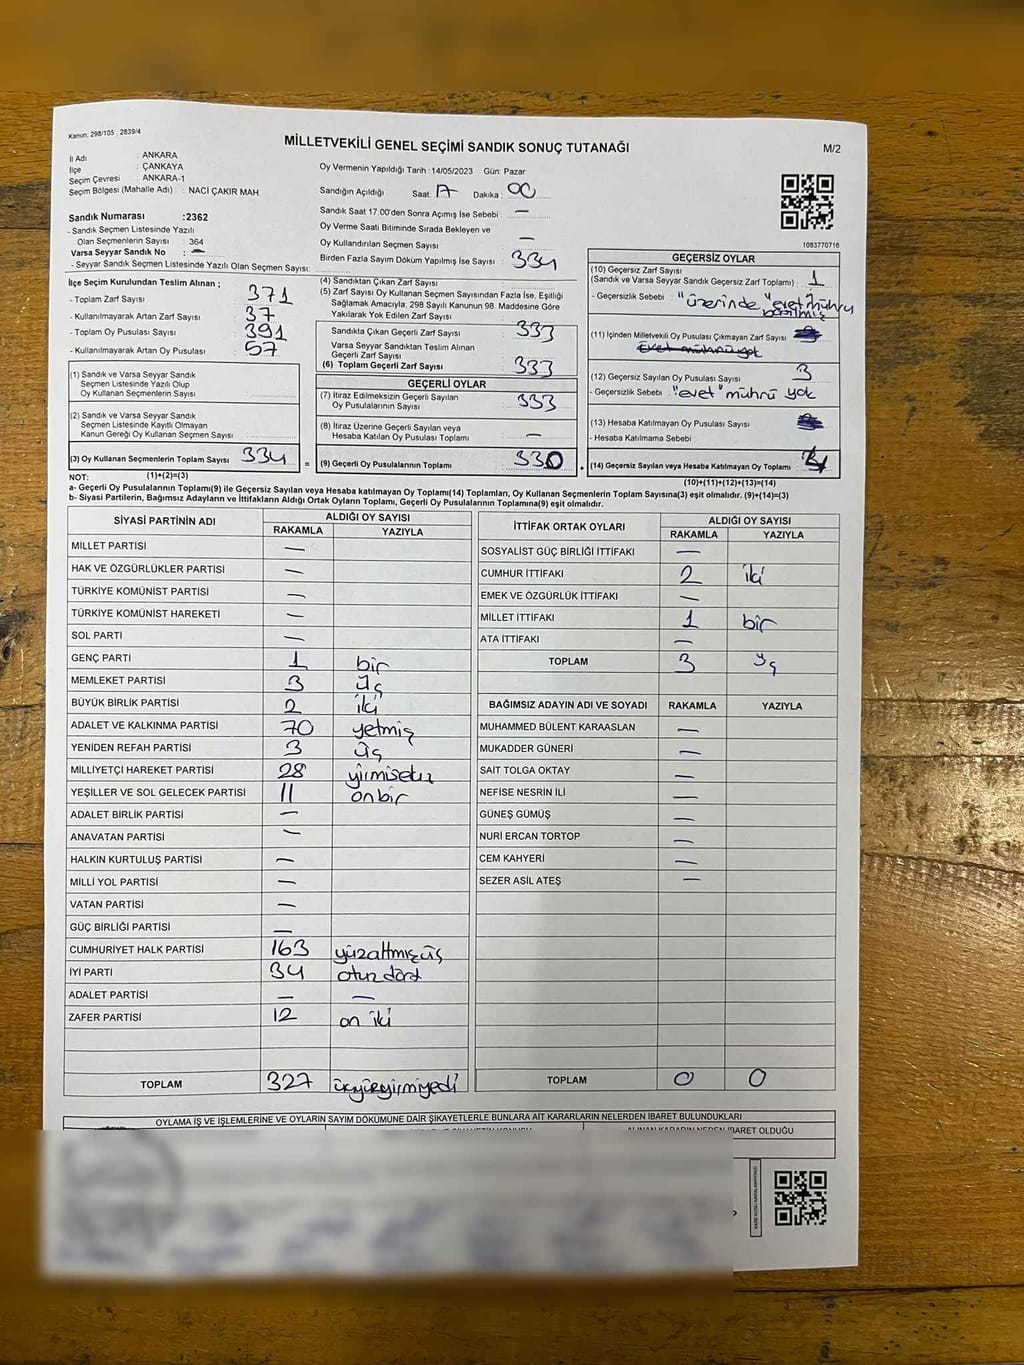 Kanun: 298/105 , 2839/4
MİLLETVEKİLİ GENEL SEÇİMİ SANDIK SONUÇ TUTANAĞI
M/2
İl Adı : ANKARA
İlçe : ÇANKAYA
Seçim Çevresi : ANKARA-1
Seçim Bölgesi (Mahalle Adı) : NACİ ÇAKIR MAH
Sandık Numarası :2362
- Sandık Seçmen Listesinde Yazılı
Olan Seçmenlerin Sayısı : 364
Varsa Seyyar Sandık No : —
- Seyyar Sandık Seçmen Listesinde Yazılı Olan Seçmen Sayısı:
Oy Vermenin Yapıldığı Tarih : 14/05/2023 Gün: Pazar
Sandığın Açıldığı Saat: 17 Dakika : 00
Sandık Saat 17:00'den Sonra Açımış İse Sebebi : —
Oy Verme Saati Bitiminde Sırada Bekleyen ve
Oy Kullandırılan Seçmen Sayısı —
Birden Fazla Sayım Döküm Yapılmış İse Sayısı : 334
1083770716
İlçe Seçim Kurulundan Teslim Alınan ;
- Toplam Zarf Sayısı 371
- Kullanılmayarak Artan Zarf Sayısı : 37
- Toplam Oy Pusulası Sayısı 391
- Kullanılmayarak Artan Oy Pusulası : 57
(1) Sandık ve Varsa Seyyar Sandık
Seçmen Listesinde Yazılı Olup
Oy Kullanan Seçmen Sayısı
(2) Sandık ve Varsa Seyyar Sandık
Seçmen Listesinde Kayıtlı Olmayan
Kanun Gereği Oy Kullanan Seçmen Sayısı :
(3) Oy Kullanan Seçmenlerin Toplam Sayısı : 334
(1)+(2)=(3)
(4) Sandıktan Çıkan Zarf Sayısı
(5) Zarf Sayısı Oy Kullanan Seçmen Sayısından Fazla İse, Eşitliği
Sağlamak Amacıyla; 298 Sayılı Kanunun 98. Maddesine Göre
Yakılarak Yok Edilen Zarf Sayısı :
Sandıkta Çıkan Geçerli Zarf Sayısı : 333
Varsa Seyyar Sandıktan Teslim Alınan
Geçerli Zarf Sayısı
(6) Toplam Geçerli Zarf Sayısı : 333
GEÇERLİ OYLAR
(7) İtiraz Edilmeksizin Geçerli Sayılan
Oy Pusulalarının Sayısı : 333
(8) İtiraz Üzerine Geçerli Sayılan veya
Hesaba Katılan Oy Pusulası Toplamı : —
= (9) Geçerli Oy Pusulalarının Toplamı : 330
GEÇERSİZ OYLAR
(10) Geçersiz Zarf Sayısı
(Sandık ve Varsa Seyyar Sandık Geçersiz Zarf Toplamı) : 1
- Geçersizlik Sebebi : "üzerinde "evet" mührü
basılmış
(11) İçinden Milletvekili Oy Pusulası Çıkmayan Zarf Sayısı :
Evet mührü yok
(12) Geçersiz Sayılan Oy Pusulası Sayısı : 3
- Geçersizlik Sebebi : "evet" mührü yok
(13) Hesaba Katılmayan Oy Pusulası Sayısı :
- Hesaba Katılmama Sebebi :
+ (14) Geçersiz Sayılan veya Hesaba Katılmayan Oy Toplamı : 4
(10)+(11)+(12)+(13)=(14)
NOT:
a- Geçerli Oy Pusulalarının Toplamı(9) ile Geçersiz Sayılan veya Hesaba katılmayan Oy Toplamı(14) Toplamları, Oy Kullanan Seçmenlerin Toplam Sayısına(3) eşit olmalıdır. (9)+(14)=(3)
b- Siyasi Partilerin, Bağımsız Adayların ve İttifakların Aldığı Ortak Oyların Toplamı, Geçerli Oy Pusulalarının Toplamına(9) eşit olmalıdır.
SİYASİ PARTİNİN ADI ALDIĞI OY SAYISI
RAKAMLA YAZIYLA
MİLLET PARTİSİ —
HAK VE ÖZGÜRLÜKLER PARTİSİ —
TÜRKİYE KOMÜNİST PARTİSİ —
TÜRKİYE KOMÜNİST HAREKETİ —
SOL PARTİ —
GENÇ PARTİ 1 bir
MEMLEKET PARTİSİ 3 üç
BÜYÜK BİRLİK PARTİSİ 2 iki
ADALET VE KALKINMA PARTİSİ 70 yetmiş
YENİDEN REFAH PARTİSİ 3 üç
MİLLİYETÇİ HAREKET PARTİSİ 28 yirmisekiz
YEŞİLLER VE SOL GELECEK PARTİSİ 11 onbir
ADALET BİRLİK PARTİSİ —
ANAVATAN PARTİSİ —
HALKIN KURTULUŞ PARTİSİ —
MİLLİ YOL PARTİSİ —
VATAN PARTİSİ —
GÜÇ BİRLİĞİ PARTİSİ —
CUMHURİYET HALK PARTİSİ 163 yüzaltmışüç
İYİ PARTİ 34 otuzdört
ADALET PARTİSİ — —
ZAFER PARTİSİ 12 on iki
TOPLAM 327 üçyüzyirmiyedi
İTTİFAK ORTAK OYLARI ALDIĞI OY SAYISI
RAKAMLA YAZIYLA
SOSYALİST GÜÇ BİRLİĞİ İTTİFAKI —
CUMHUR İTTİFAKI 2 iki
EMEK VE ÖZGÜRLÜK İTTİFAKI —
MİLLET İTTİFAKI 1 bir
ATA İTTİFAKI —
TOPLAM 3 üç
BAĞIMSIZ ADAYIN ADI VE SOYADI RAKAMLA YAZIYLA
MUHAMMED BÜLENT KARAASLAN —
MUKADDER GÜNERİ —
SAİT TOLGA OKTAY —
NEFİSE NESRİN İLİ —
GÜNEŞ GÜMÜŞ —
NURİ ERCAN TORTOP —
CEM KAHYERİ —
SEZER ASİL ATEŞ —
TOPLAM 0 0
OYLAMA İŞ VE İŞLEMLERİNE VE OYLARIN SAYIM DÖKÜMÜNE DAİR ŞİKAYETLERLE BUNLARA AİT KARARLARIN NELERDEN İBARET BULUNDUKLARI
ALINAN KARARIN NEDEN İBARET OLDUĞU